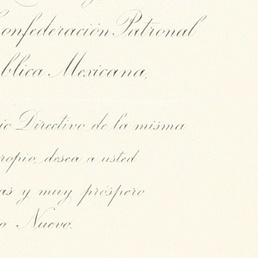 Confederación Patronal
ública Mexicana,
io Directivo de la misma
ropio, desea a usted
as y muy próspero
o Nuevo.